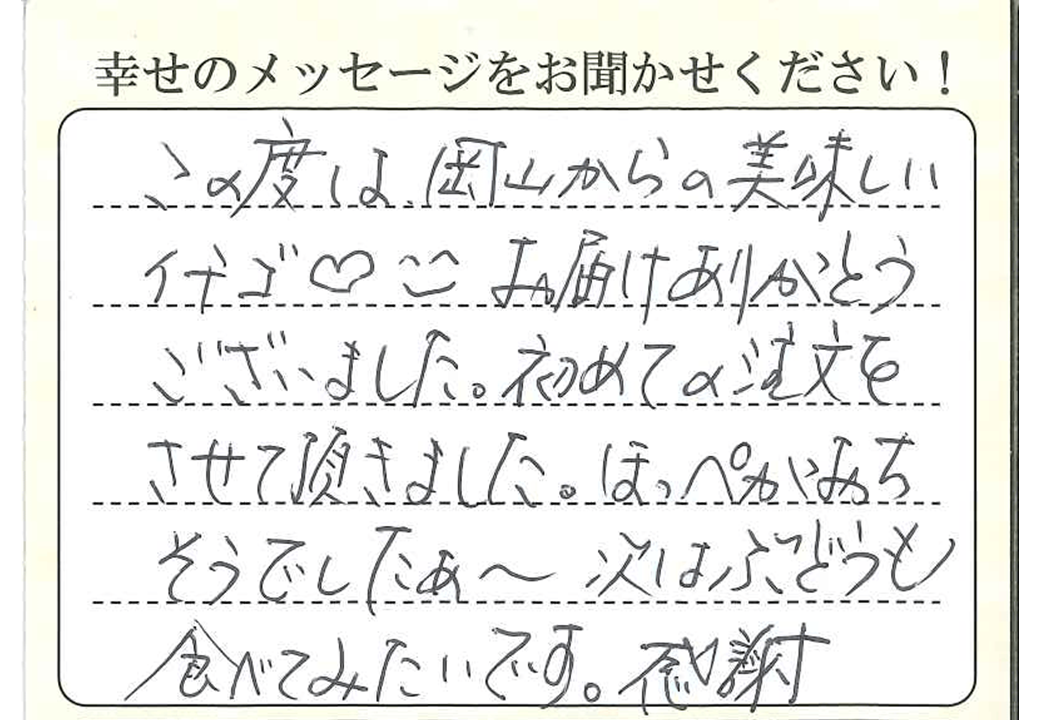 幸せのメッセージをお聞かせください！
この度は、岡山からの美味しい
イチゴ♡ お届けありがとう
ございました。初めての注文を
させて頂きました。ほっぺがおち
そうでしたぁ〜 次はぶどうも
食べてみたいです。感謝